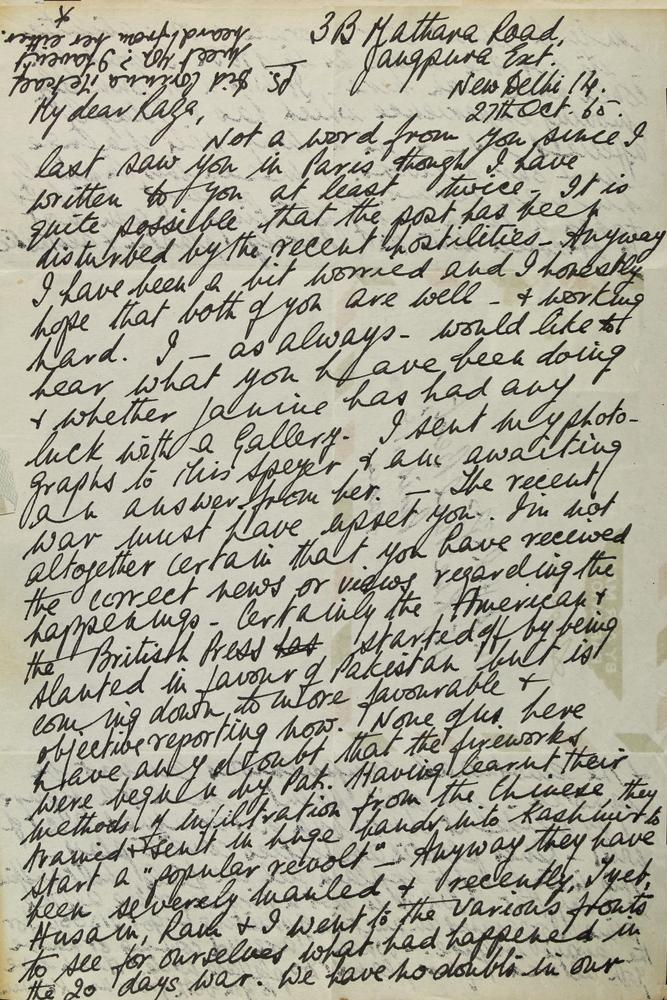 3B Mathura Road,
Jangpura Ext.
New Delhi 14.
27th Oct. 65.
My dear Raza,
Not a word from you since I
last saw you in Paris though I have
written to you at least twice - It is
quite possible that the post has been
disturbed by the recent hostilities - Anyway
I have been a bit worried and I honestly
hope that both of you are well - & working
hard. I - as always - would like to
hear what you have been doing
& whether Janine has had any
luck with a Gallery. I sent my photo-
graphs to Miss Speyer & am awaiting
an answer from her. - The recent
war must have upset you. I'm not
altogether certain that you have received
the correct news or views regarding the
happenings - Certainly the American &
the British Press has started off by being
slanted in favour of Pakistan but is
coming down to more favourable &
objective reporting now. None of us here
have any doubt that the fireworks
were begun by Pak. Having learnt their
methods of infiltration from the Chinese, they
trained & sent in huge bands into Kashmir to
start a "popular revolt" - Anyway they have
been severely mauled & recently, Tyeb,
Husain, Ram & I went to the various fronts
to see for ourselves what had happened in
the 20 days war. We have no doubts in our
PS Did Corinna Metcalf
meet you? I haven't
heard from her either.